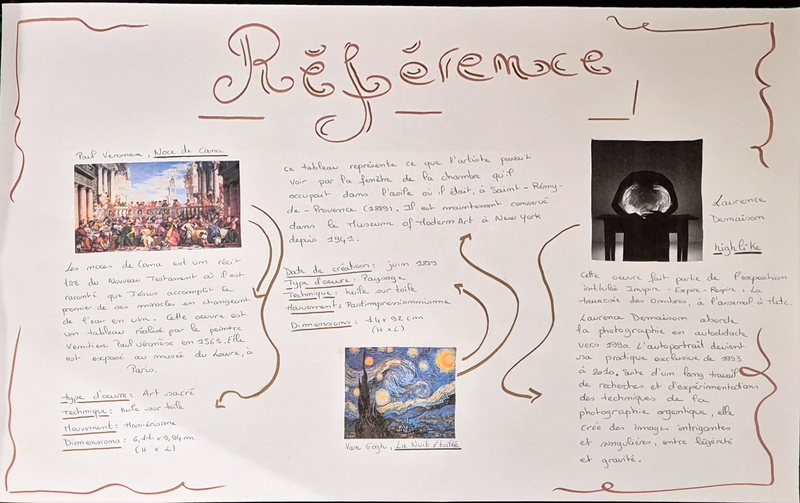 Référence
Paul Veronese, Noce de Cana
Les noces de Cana est un récit
tiré du Nouveau Testament où il est
raconté que Jésus accomplit le
premier de ses miracles en changeant
de l'eau en vin. Cette œuvre est
un tableau réalisé par le peintre
Vénitien Paul Véronèse en 1563. Elle
est exposé au musée du Louvre, à
Paris.
Type d'œuvre: Art sacré
Technique: huile sur toile
Mouvement: Maniérisme
Dimensions: 6,77 x 9,94 m
(H x L)
Ce tableau représente ce que l'artiste pouvait
voir par la fenêtre de la chambre qu'il
occupait dans l'asile où il était, à Saint-Rémy-
de-Provence (1889). Il est maintenant conservé
dans le Museume of Modern Art à New York
depuis 1941.
Date de création: juin 1889
Type d'œuvre: Paysage
Technique: huile sur toile
Mouvement: Postimpressionnisme
Dimensions: 74 x 92 cm
(H x L)
Gogh, La Nuit étoilée
Laurence
Demaison
highlike
Cette oeuvre fait partie de l'exposition
intitulée Inspire - Expire - Respire: La
traversée des Ombres, à l'arsenal à Metz.
Laurence Demaison aborde
la photographie en autodidacte
vers 1990. L'autoportrait devient
sa pratique exclusive de 1993
à 2010. Suite d'un long travail
de recherches et d'expérimentations
des techniques de la
photographie argentique, elle
crée des images intrigantes
et singulières, entre légèreté
et gravité.